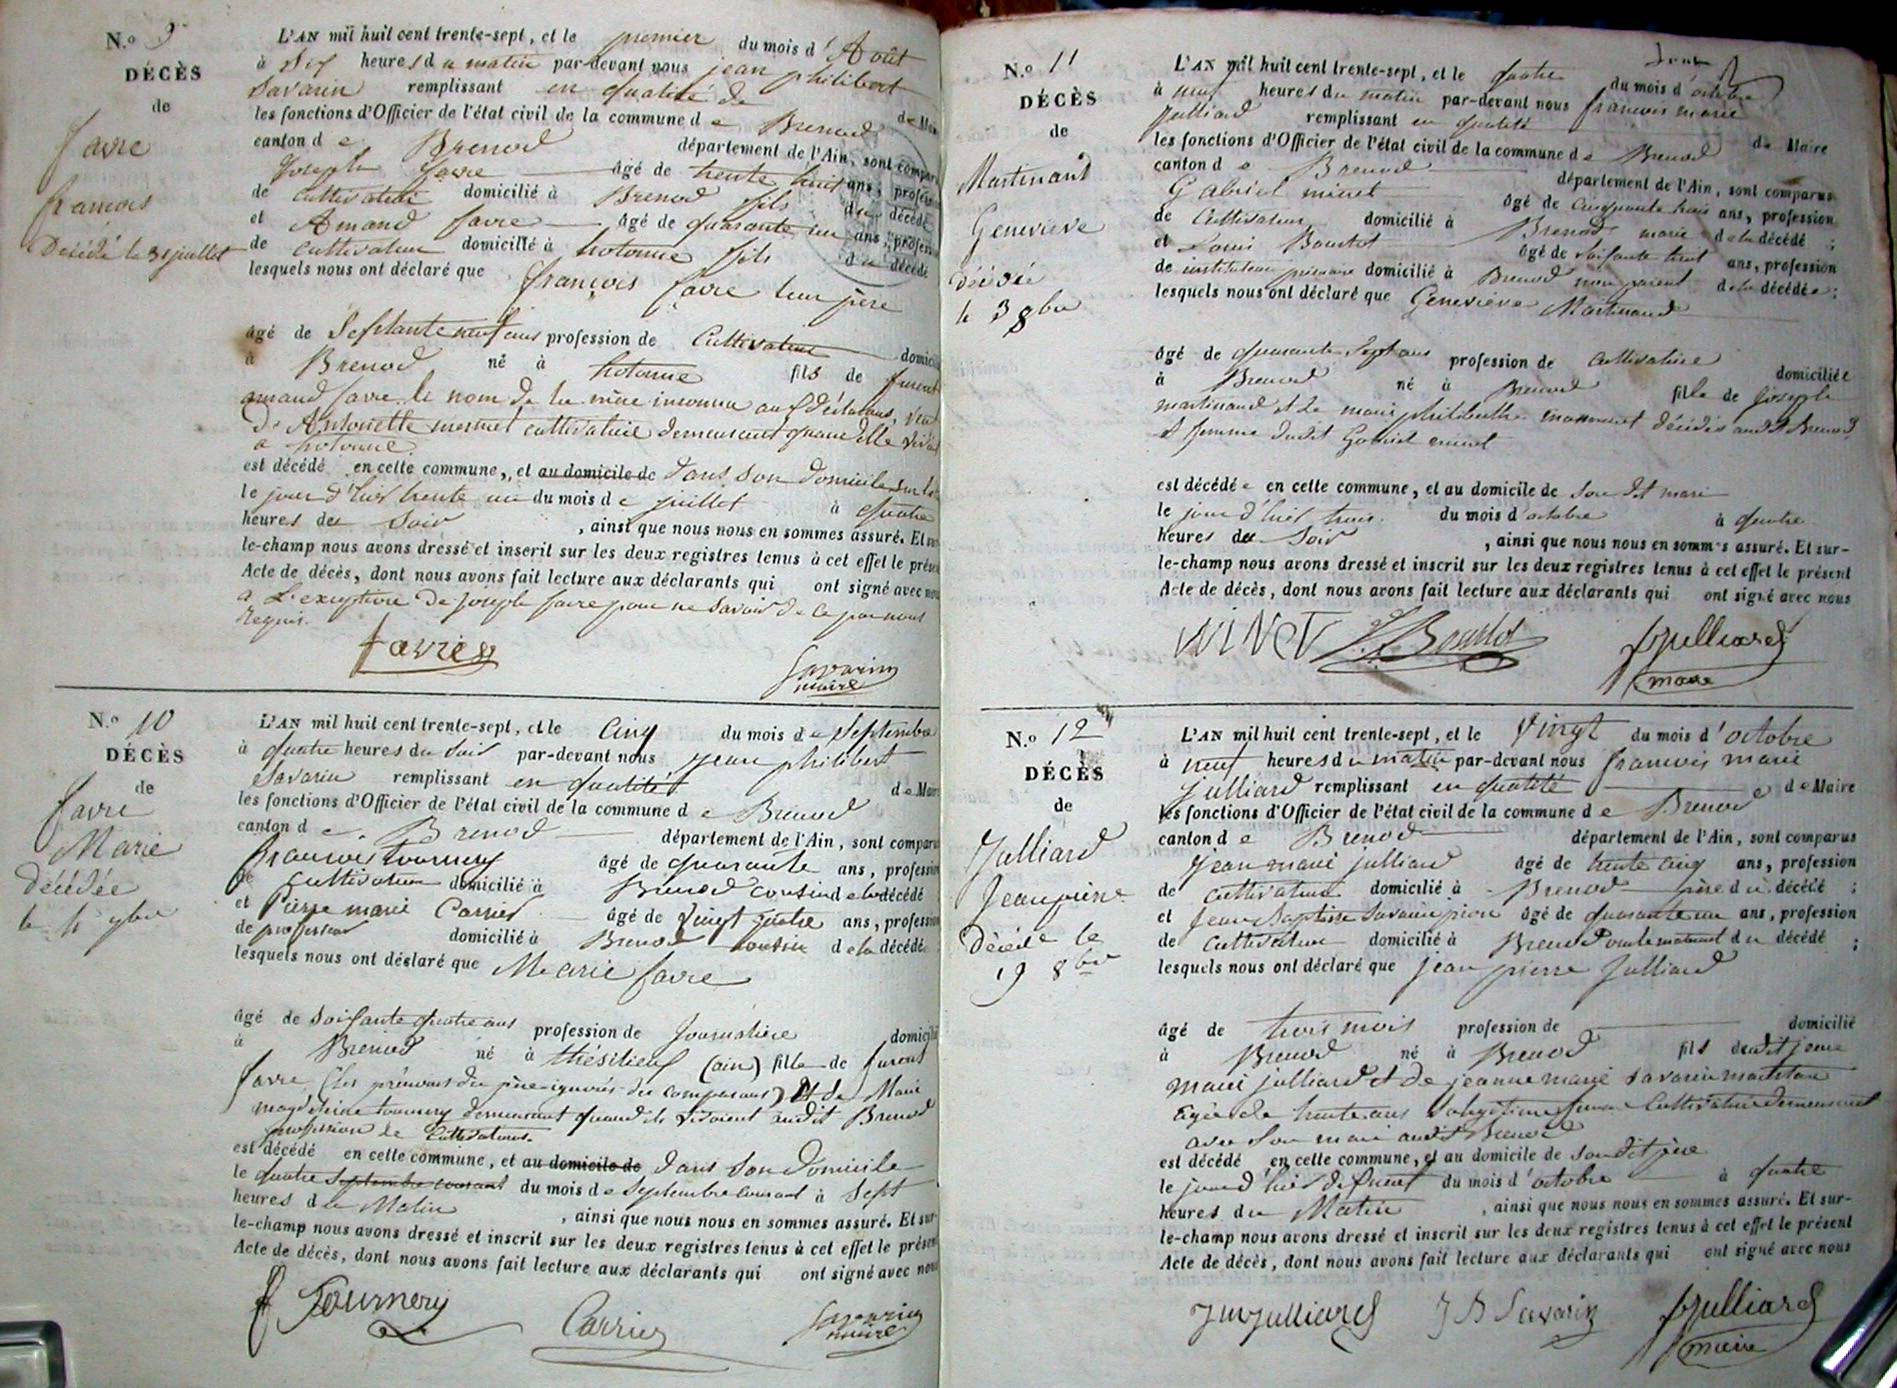 N.o 9
DÉCÈS
de
favre
françois
Décédé le 31 juillet
L'AN mil huit cent trente-sept, et le premier du mois d'Août
à Six heures du matin par-devant nous jean philibert
Savarin remplissant en qualité de de Mair
les fonctions d'Officier de l'état civil de la commune de Brenod
canton de Brenod département de l'Ain, sont compar
Joseph favre âgé de trente huit ans, profess
de cultivateur domicilié à Brenod fils du décédé
et Amand favre âgé de quarante un ans, profess
de cultivateur domicilié à hotonne fils du décédé
lesquels nous ont déclaré que françois favre leur père
âgé de Septante neuf ans profession de Cultivateur domicil
à Brenod né à hotonne fils de
amand favre le nom de la mère inconnu aux déclarans,
De Antoinette mermet cultivatrice demeurant quand elle
a hotonne.
est décédé en cette commune, et au domicile de dans son domicile
le jour d'hier trente un du mois de juillet à quatre
heures du soir, ainsi que nous nous en sommes assuré. Et sur
le-champ nous avons dressé et inscrit sur les deux registres tenus à cet effet le présen
Acte de décès, dont nous avons fait lecture aux déclarants qui ont signé avec nous
a L'exception de joseph favre pour ne savoir de ce par nous
requis.
favre
Savarin
maire
N.o 10
DÉCÈS
de
favre
Marie
décédée
le 4 7bre
L'AN mil huit cent trente-sept, et le Cinq du mois de Septembre
à quatre heures du soir par-devant nous jean philibert
Savarin remplissant en qualité de Maire
les fonctions d'Officier de l'état civil de la commune de Brenod
canton de Brenod département de l'Ain, sont comparus
françois tournery âgé de quarante ans, profession
de cultivateur domicilié à Brenod cousin de la décédé
et Pierre marie Carrier âgé de vingt quatre ans, profession
de professeur domicilié à Brenod cousin de la décédée
lesquels nous ont déclaré que Marie favre
âgé de soixante quatre ans profession de journalière domicilié
à Brenod né à thésilieu (ain) fille de
favre (les prénoms du père ignorés des comparans) Et de Marie
magdeleine tournery demeurant quand ils vivoient audit Brenod
profession de Cultivateurs.
est décédé en cette commune, et au domicile de dans son domicile
le quatre septembre courant du mois de Septembre courant à Sept
heures du Matin, ainsi que nous nous en sommes assuré. Et sur
le-champ nous avons dressé et inscrit sur les deux registres tenus à cet effet le présen
Acte de décès, dont nous avons fait lecture aux déclarants qui ont signé avec nous
f Tournery
Carrier
Savarin
maire
N.o 11
DÉCÈS
de
Martinand
Genevieve
décédée
le 3 8bre
L'AN mil huit cent trente-sept, et le quatre du mois d'octobre
à neuf heures du matin par-devant nous francois marie
Julliard remplissant en qualité de Maire
les fonctions d'Officier de l'état civil de la commune de Brenod
canton de Brenod département de l'Ain, sont comparus
Gabriel minet âgé de cinquante trois ans, profession
de Cultivateur domicilié à Brenod marie de la décédé ;
et Louis Bourlot âgé de soixante huit ans, profession
de instituteur primaire domicilié à Brenod non parent de la décédée ;
lesquels nous ont déclaré que Geneviève Martinand
âgé de quarante sept ans profession de cultivatrice domiciliée
à Brenod né à Brenod fille de joseph
martinand et de marie philiberthe décédés audit Brenod
et femme dudit Gabriel minet
est décédée en cette commune, et au domicile de son dit mari
le jour d'hier trois du mois d'octobre à quatre
heures du soir, ainsi que nous nous en sommes assuré. Et sur-
le-champ nous avons dressé et inscrit sur les deux registres tenus à cet effet le présent
Acte de décès, dont nous avons fait lecture aux déclarants qui ont signé avec nous
MINET
L. Bourlot
fJulliard
maire
N.o 12
DÉCÈS
de
Julliard
Jean pierre
Décédé le
19 8bre
L'AN mil huit cent trente-sept, et le vingt du mois d'octobre
à neuf heures du matin par-devant nous francois marie
Julliard remplissant en qualité de Maire
les fonctions d'Officier de l'état civil de la commune de Brenod
canton de Brenod département de l'Ain, sont comparus
jean marie julliard âgé de trente cinq ans, profession
de cultivateur domicilié à Brenod père du décédé ;
et jean Baptiste Savarin âgé de quarante un ans, profession
de cultivateur domicilié à Brenod oncle maternel du décédé ;
lesquels nous ont déclaré que jean pierre Julliard
âgé de trois mois profession de domicilié
à Brenod né à Brenod fils dudit jean
marie julliard et de jeanne marie savarin
agée de trente ans cultivatrice demeurant
avec son mari audit Brenod
est décédé en cette commune, et au domicile de son dit père
le jour d'hier dix neuf du mois d'octobre à quatre
heures du Matin, ainsi que nous nous en sommes assuré. Et sur-
le-champ nous avons dressé et inscrit sur les deux registres tenus à cet effet le présent
Acte de décès, dont nous avons fait lecture aux déclarants qui ont signé avec nous
JMJulliard
J B Savarin
fJulliard
maire